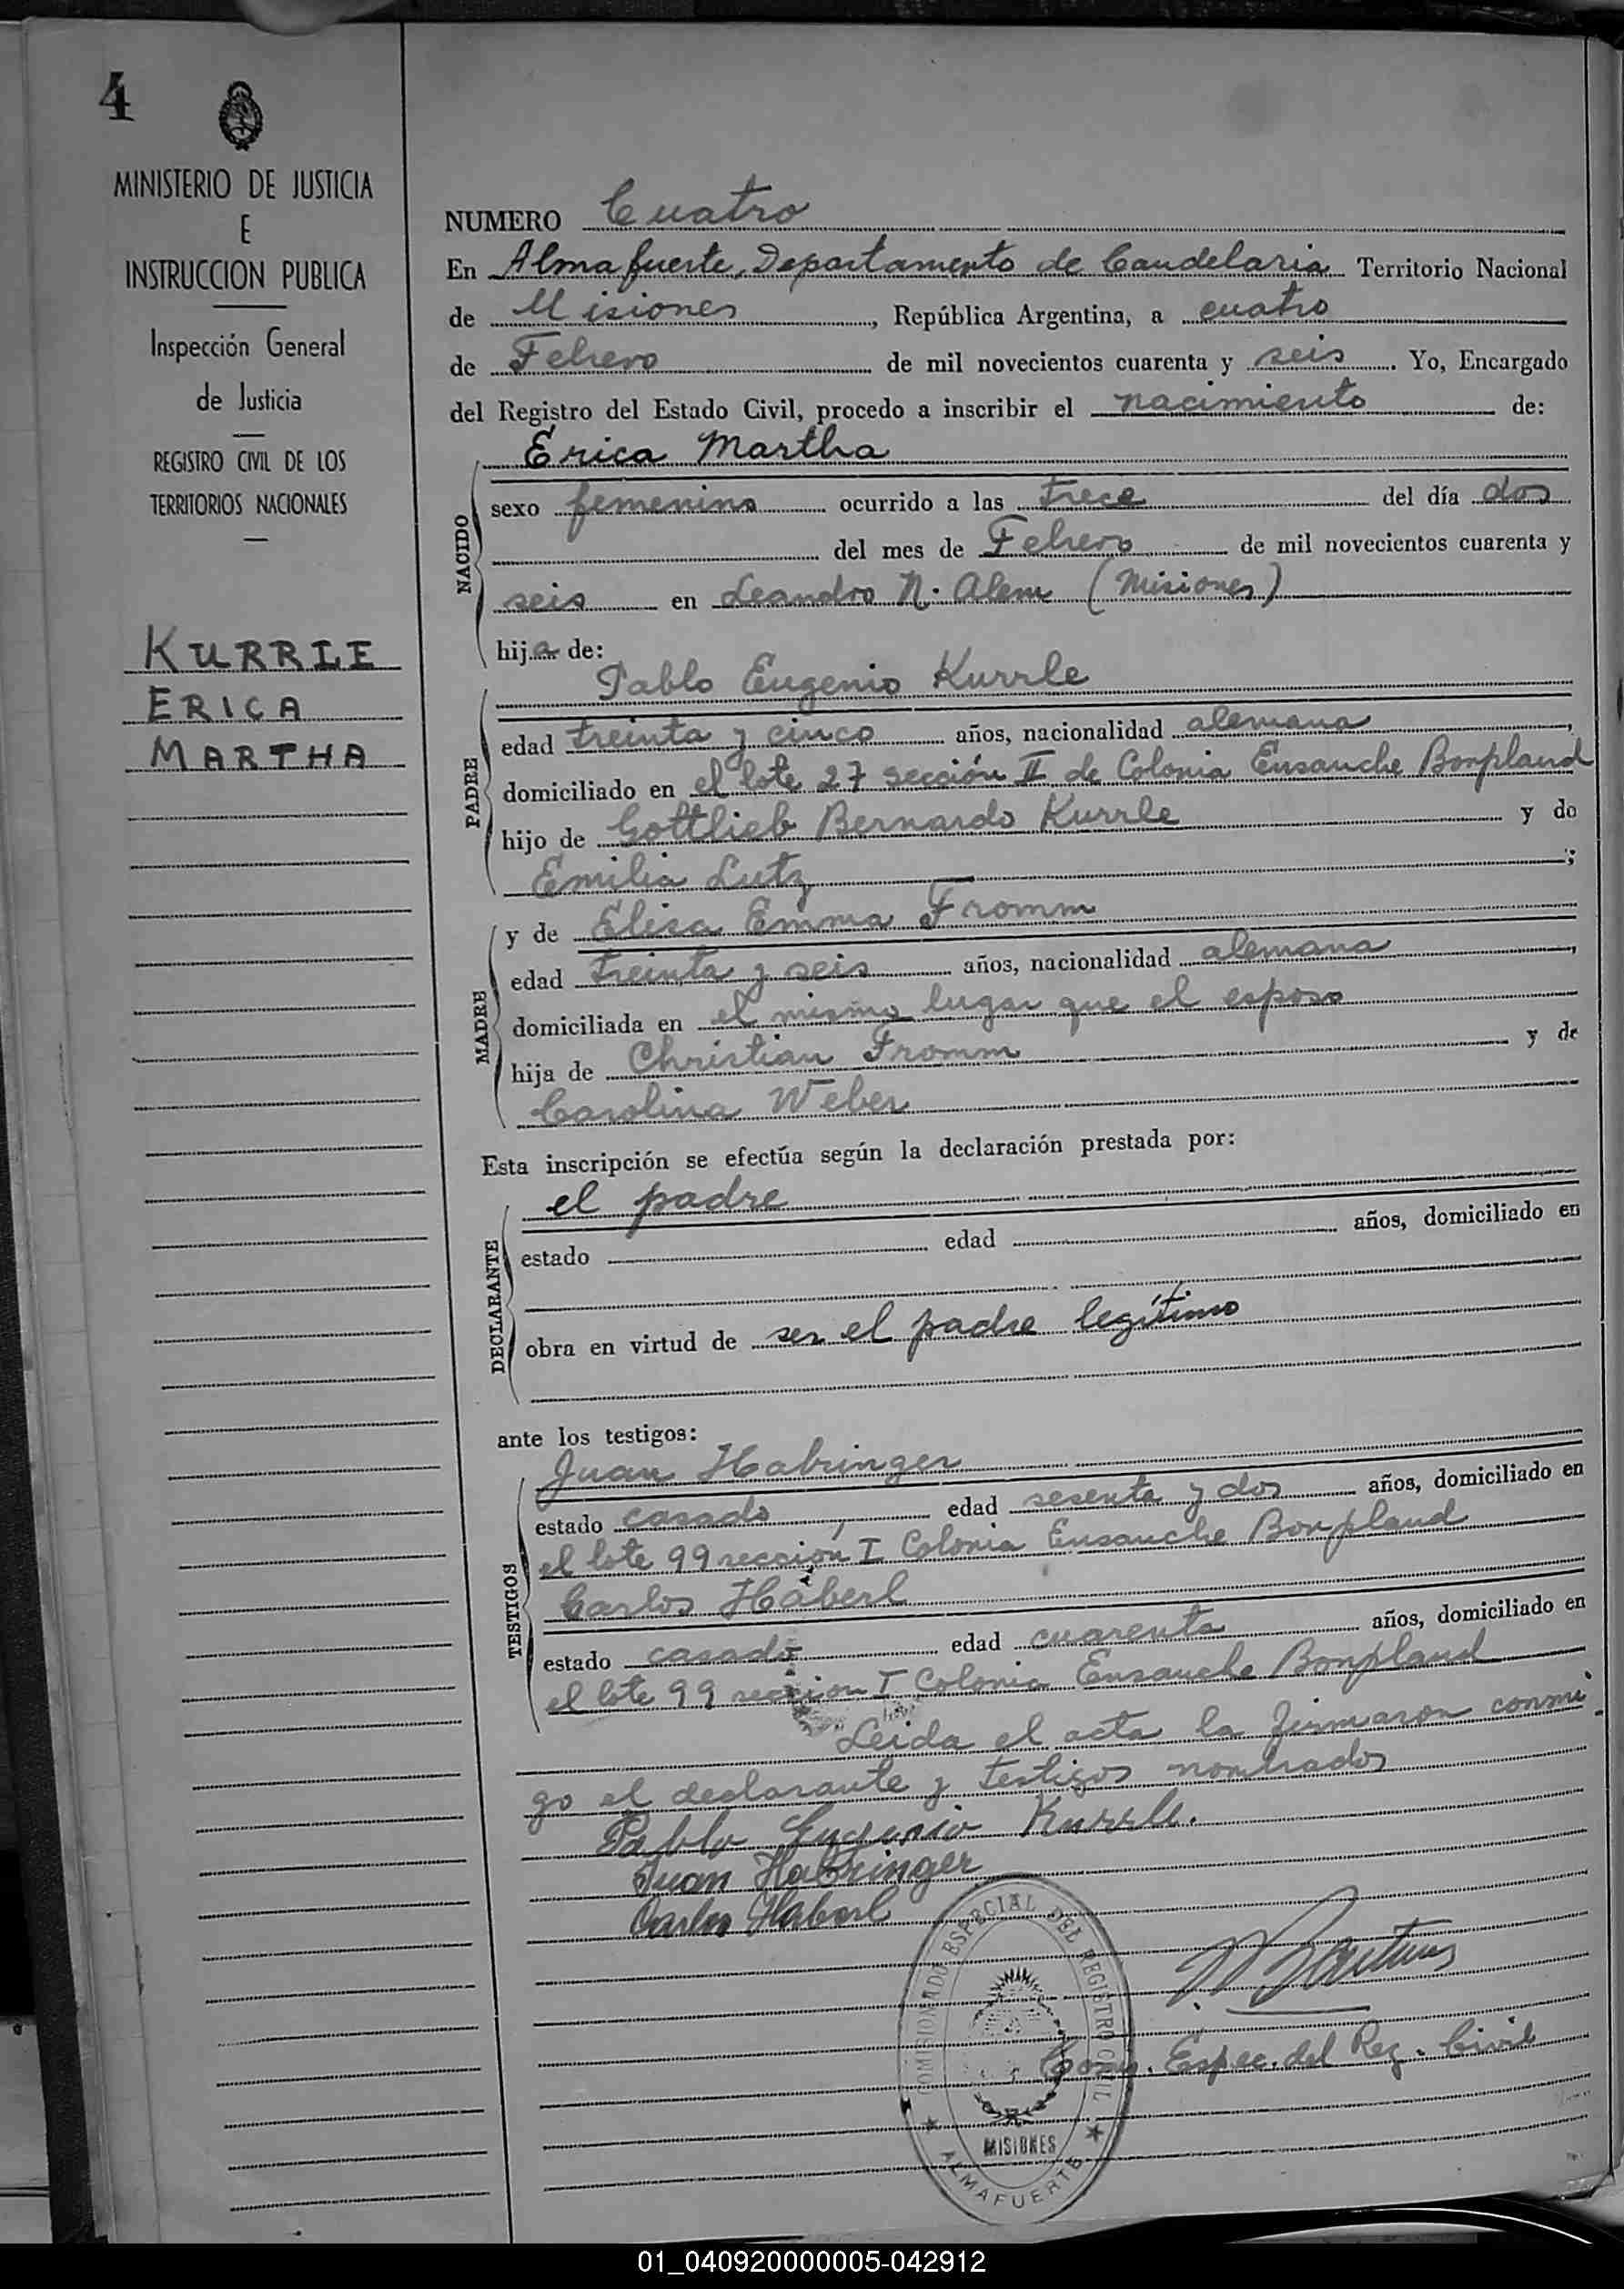 4
MINISTERIO DE JUSTICIA
E
INSTRUCCION PUBLICA
Inspección General
de Justicia
REGISTRO CIVIL DE LOS
TERRITORIOS NACIONALES
KURRLE
ERICA
MARTHA
NUMERO Cuatro
En Almafuerte, Departamento de Candelaria Territorio Nacional
de Misiones, República Argentina, a cuatro
de Febrero de mil novecientos cuarenta y seis. Yo, Encargado
del Registro del Estado Civil, procedo a inscribir el nacimiento de:
NACIDO
Erica Martha
sexo femenino ocurrido a las trece del día dos
del mes de Febrero de mil novecientos cuarenta y
seis en Leandro N. Alem (Misiones)
hija de:
PADRE
Pablo Eugenio Kurrle
edad treinta y cinco años, nacionalidad alemana,
domiciliado en el lote 27 sección II de Colonia Ensanche Bonpland
hijo de Gottlieb Bernardo Kurrle y de
Emilia Lutz;
MADRE
y de Elisa Emma Fromm
edad treinta y seis años, nacionalidad alemana,
domiciliada en el mismo lugar que el esposo
hija de Christian Fromm y de
Carolina Weber
Esta inscripción se efectúa según la declaración prestada por:
DECLARANTE
el padre
estado edad años, domiciliado en
obra en virtud de ser el padre legítimo
ante los testigos:
TESTIGOS
Juan Habringer
estado casado edad sesenta y dos años, domiciliado en
el lote 99 sección I Colonia Ensanche Bonpland
Carlos Häberl
estado casado edad cuarenta años, domiciliado en
el lote 99 sección I Colonia Ensanche Bonpland
Leida el acta la firmaron conmi-
go el declarante y testigos nombrados
Pablo Eugenio Kurrle.
Juan Habringer
Carlos Häberl
COMISIONADO ESPECIAL DEL REGISTRO CIVIL
MISIONES
ALMAFUERTE
Comis. Espec. del Reg. Civil
01_040920000005-042912